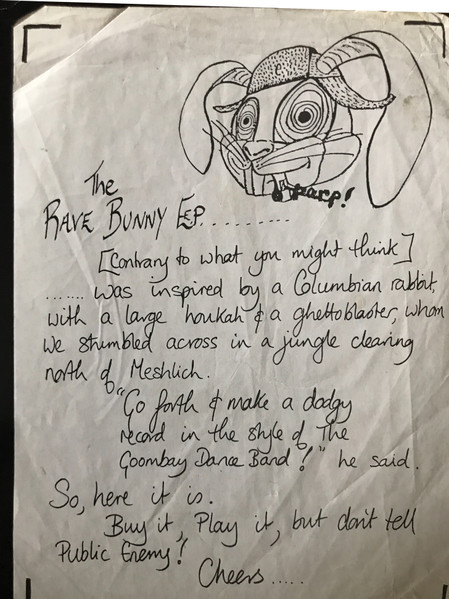 parp!
The
RAVE BUNNY E.P. ..........
[Contrary to what you might think]
....... was inspired by a Columbian rabbit,
with a large houkah & a ghettoblaster, whom
we stumbled across in a jungle clearing
north of Meshlich.
"Go forth & make a dodgy
record in the style of The
Goombay Dance Band!" he said.
So, here it is.
Buy it, Play it, but don't tell
Public Enemy!
Cheers.....